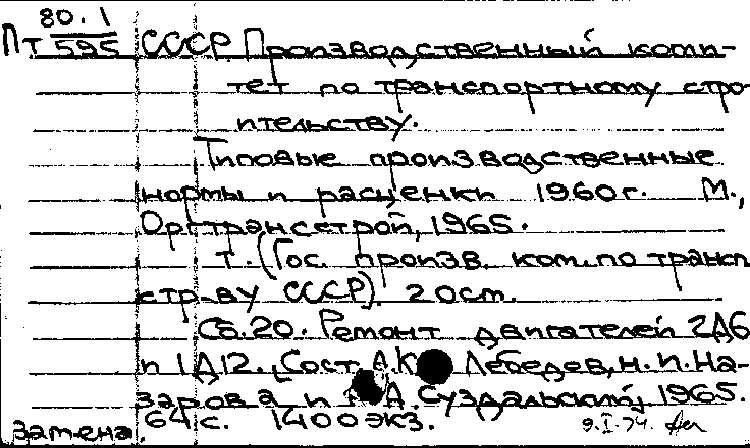 80.1
Пт 595 СССР. Производственный коми-
тет по транспортному стро-
ительству.
Типовые производственные
нормы и расценки 1960г. М.,
Оргтрансстрой, 1965.
т. (Гос. произв. ком. по трансп.
стр-ву СССР). 20 см.
Сб. 20. Ремонт двигателей 2Д6
и 1Д12. [Сост. А.К. Лебедев, Н.П. На-
зарова и А. Суздальский], 1965.
64 с. 1400 экз.
замена. 9.I-74.